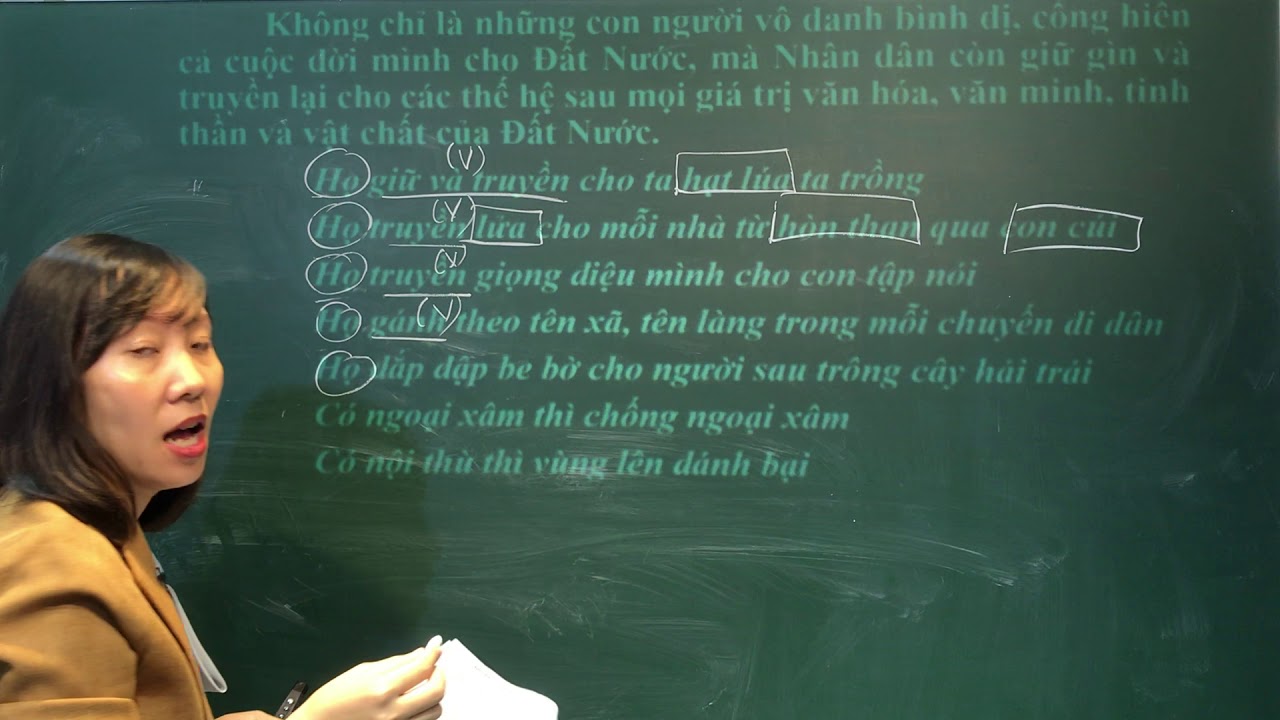 Không chỉ là những con người vô danh bình dị, cống hiến
cả cuộc đời mình cho Đất Nước, mà Nhân dân còn giữ gìn và
truyền lại cho các thế hệ sau mọi giá trị văn hóa, văn minh, tinh
thần và vật chất của Đất Nước.
(V)
Họ giữ và truyền cho ta hạt lúa ta trồng
(V)
Họ truyền lửa cho mỗi nhà từ hòn than qua con cúi
(V)
Họ truyền giọng điệu mình cho con tập nói
(V)
Họ gánh theo tên xã, tên làng trong mỗi chuyến di dân
Họ đắp đập be bờ cho người sau trông cây hái trái
Có ngoại xâm thì chống ngoại xâm
Có nội thù thì vùng lên đánh bại